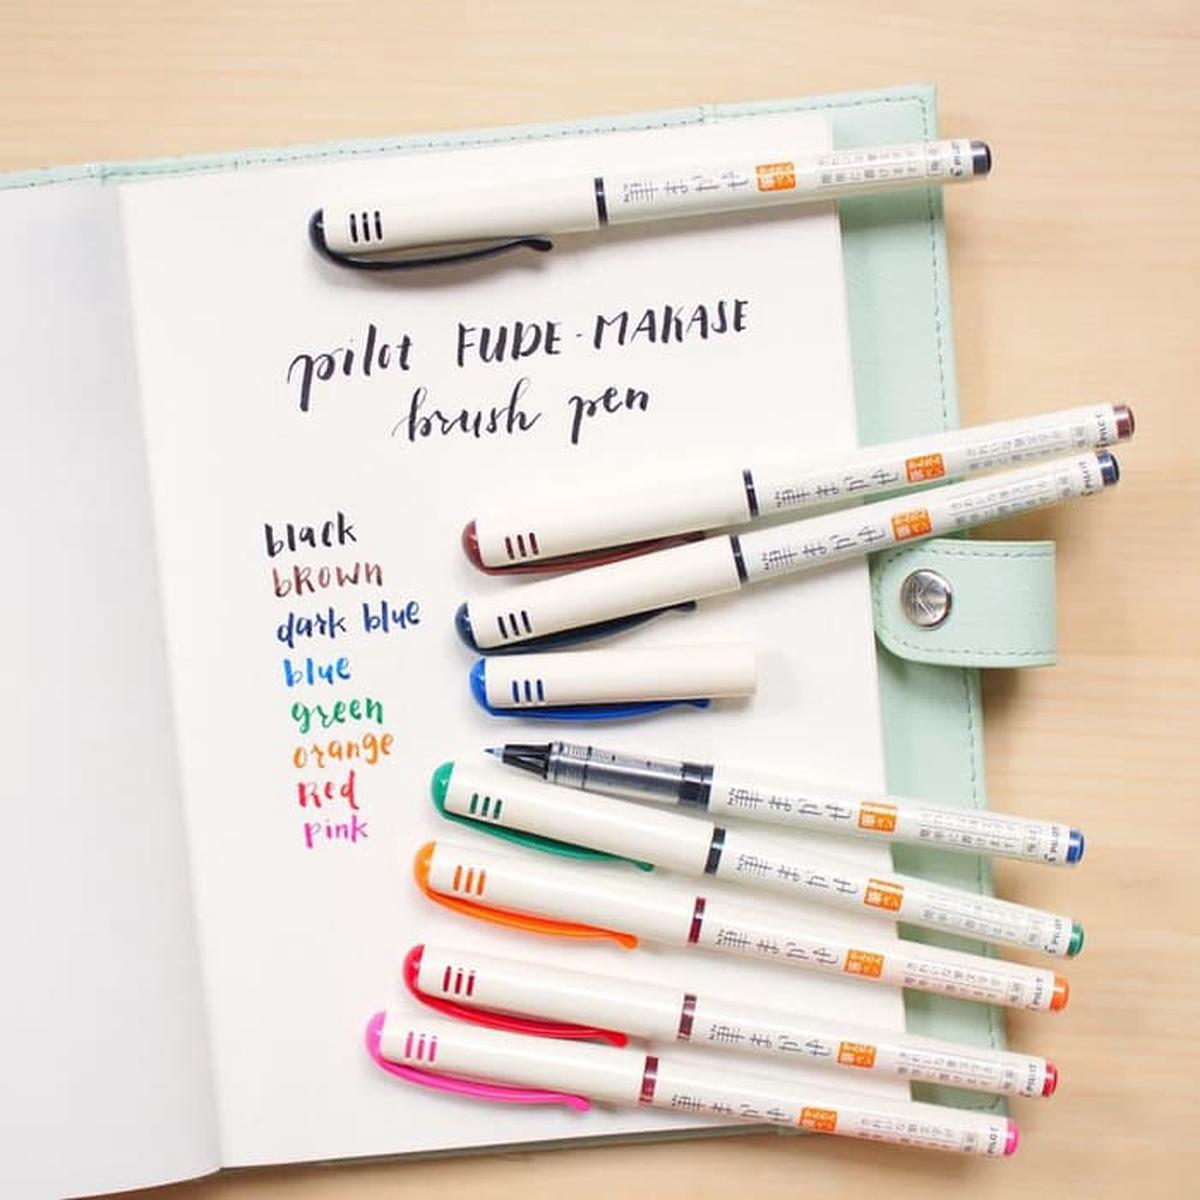 筆まかせ
PILOT
pilot FUDE-MAKASE
brush pen
black
bROWN
dark blue
blue
green
orange
Red
pink
筆まかせ
PILOT
筆まかせ
PILOT
筆まかせ
PILOT
筆まかせ
PILOT
筆まかせ
PILOT
筆まかせ
PILOT
筆まかせ
PILOT